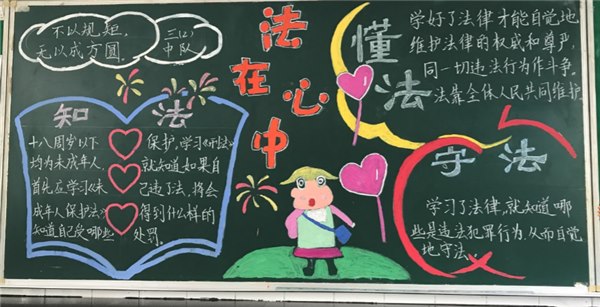 不以规矩,
无以成方圆。
三(2)
中队
法在心中
知法
十八周岁以下
均为未成年人
首先应学习《未
成年人保护法》
知道自己受哪些
保护,学习《刑法》
就知道如果自
己违了法,将会
得到什么样的
处罚。
懂法
学好了法律才能自觉地
维护法律的权威和尊严,
同一切违法行为作斗争。
法靠全体人民共同维护
守法
学习了法律,就知道哪
些是违法犯罪行为,从而自觉
地守法。